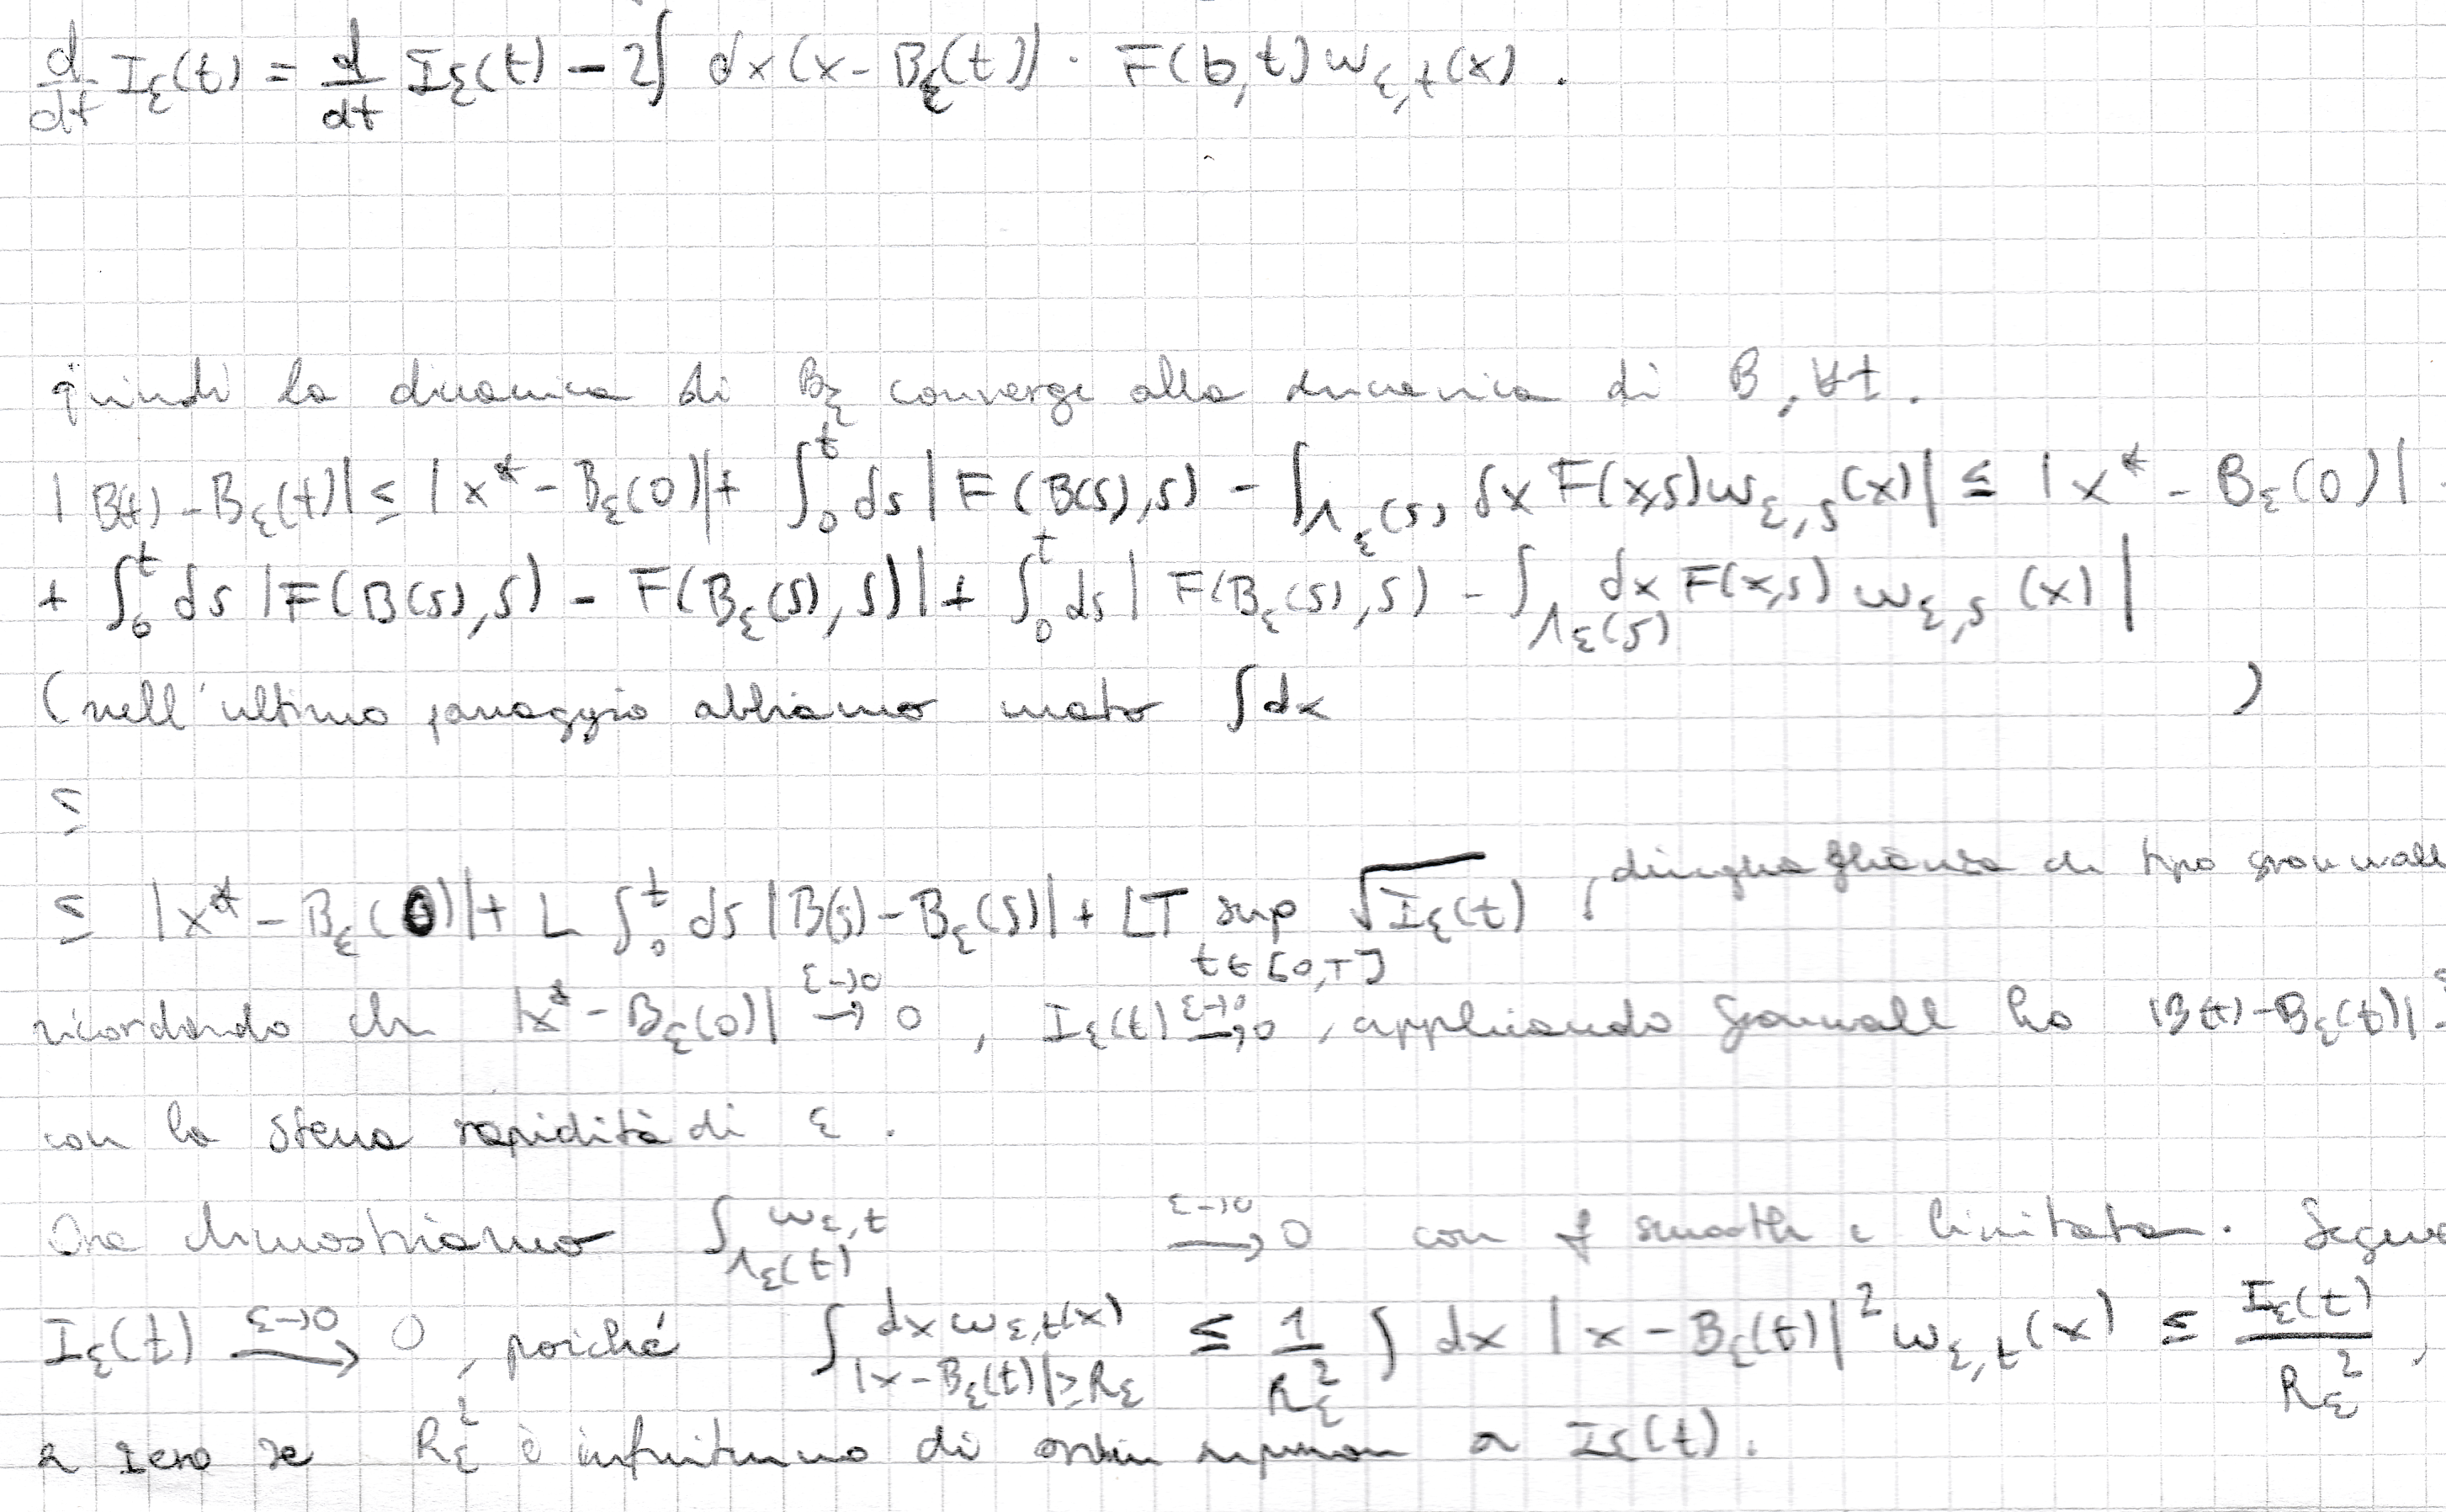 d/dt I_ε(t) = d/dt I_ε(t) - 2∫ dx (x - B_ε(t)) · F(b,t) w_ε,t(x) .
quindi la dinamica di B_ε converge alla dinamica di B, ∀t.
|B(t) - B_ε(t)| ≤ |x* - B_ε(0)| + ∫_0^t ds |F(B(s),s) - ∫_Λ_ε(s) dx F(x,s) w_ε,s(x)| ≤ |x* - B_ε(0)|
+ ∫_0^t ds |F(B(s),s) - F(B_ε(s),s)| + ∫_0^t ds |F(B_ε(s),s) - ∫_Λ_ε(s) dx F(x,s) w_ε,s(x)|
(nell'ultimo passaggio abbiamo usato ∫dx )
≤
≤ |x* - B_ε(0)| + L ∫_0^t ds |B(s) - B_ε(s)| + LT sup_{t∈[0,T]} √I_ε(t) , disuguaglianza di tipo gronwall
ricordando che |x* - B_ε(0)| →^{ε→0} 0 , I_ε(t) →^{ε→0} 0 , applicando Gronwall ho |B(t) - B_ε(t)|
con la stessa rapidità di ε .
Ora dimostriamo ∫_Λ_ε(t) w_ε,t →^{ε→0} 0 con f smooth e limitata.
I_ε(t) →^{ε→0} 0 , poiché ∫_{|x-B_ε(t)|≥R_ε} dx w_ε,t(x) ≤ 1/R_ε^2 ∫ dx |x - B_ε(t)|^2 w_ε,t(x) ≤ I_ε(t)/R_ε^2 ,
a zero se R_ε^2 è infinitesimo di ordine a I_ε(t).